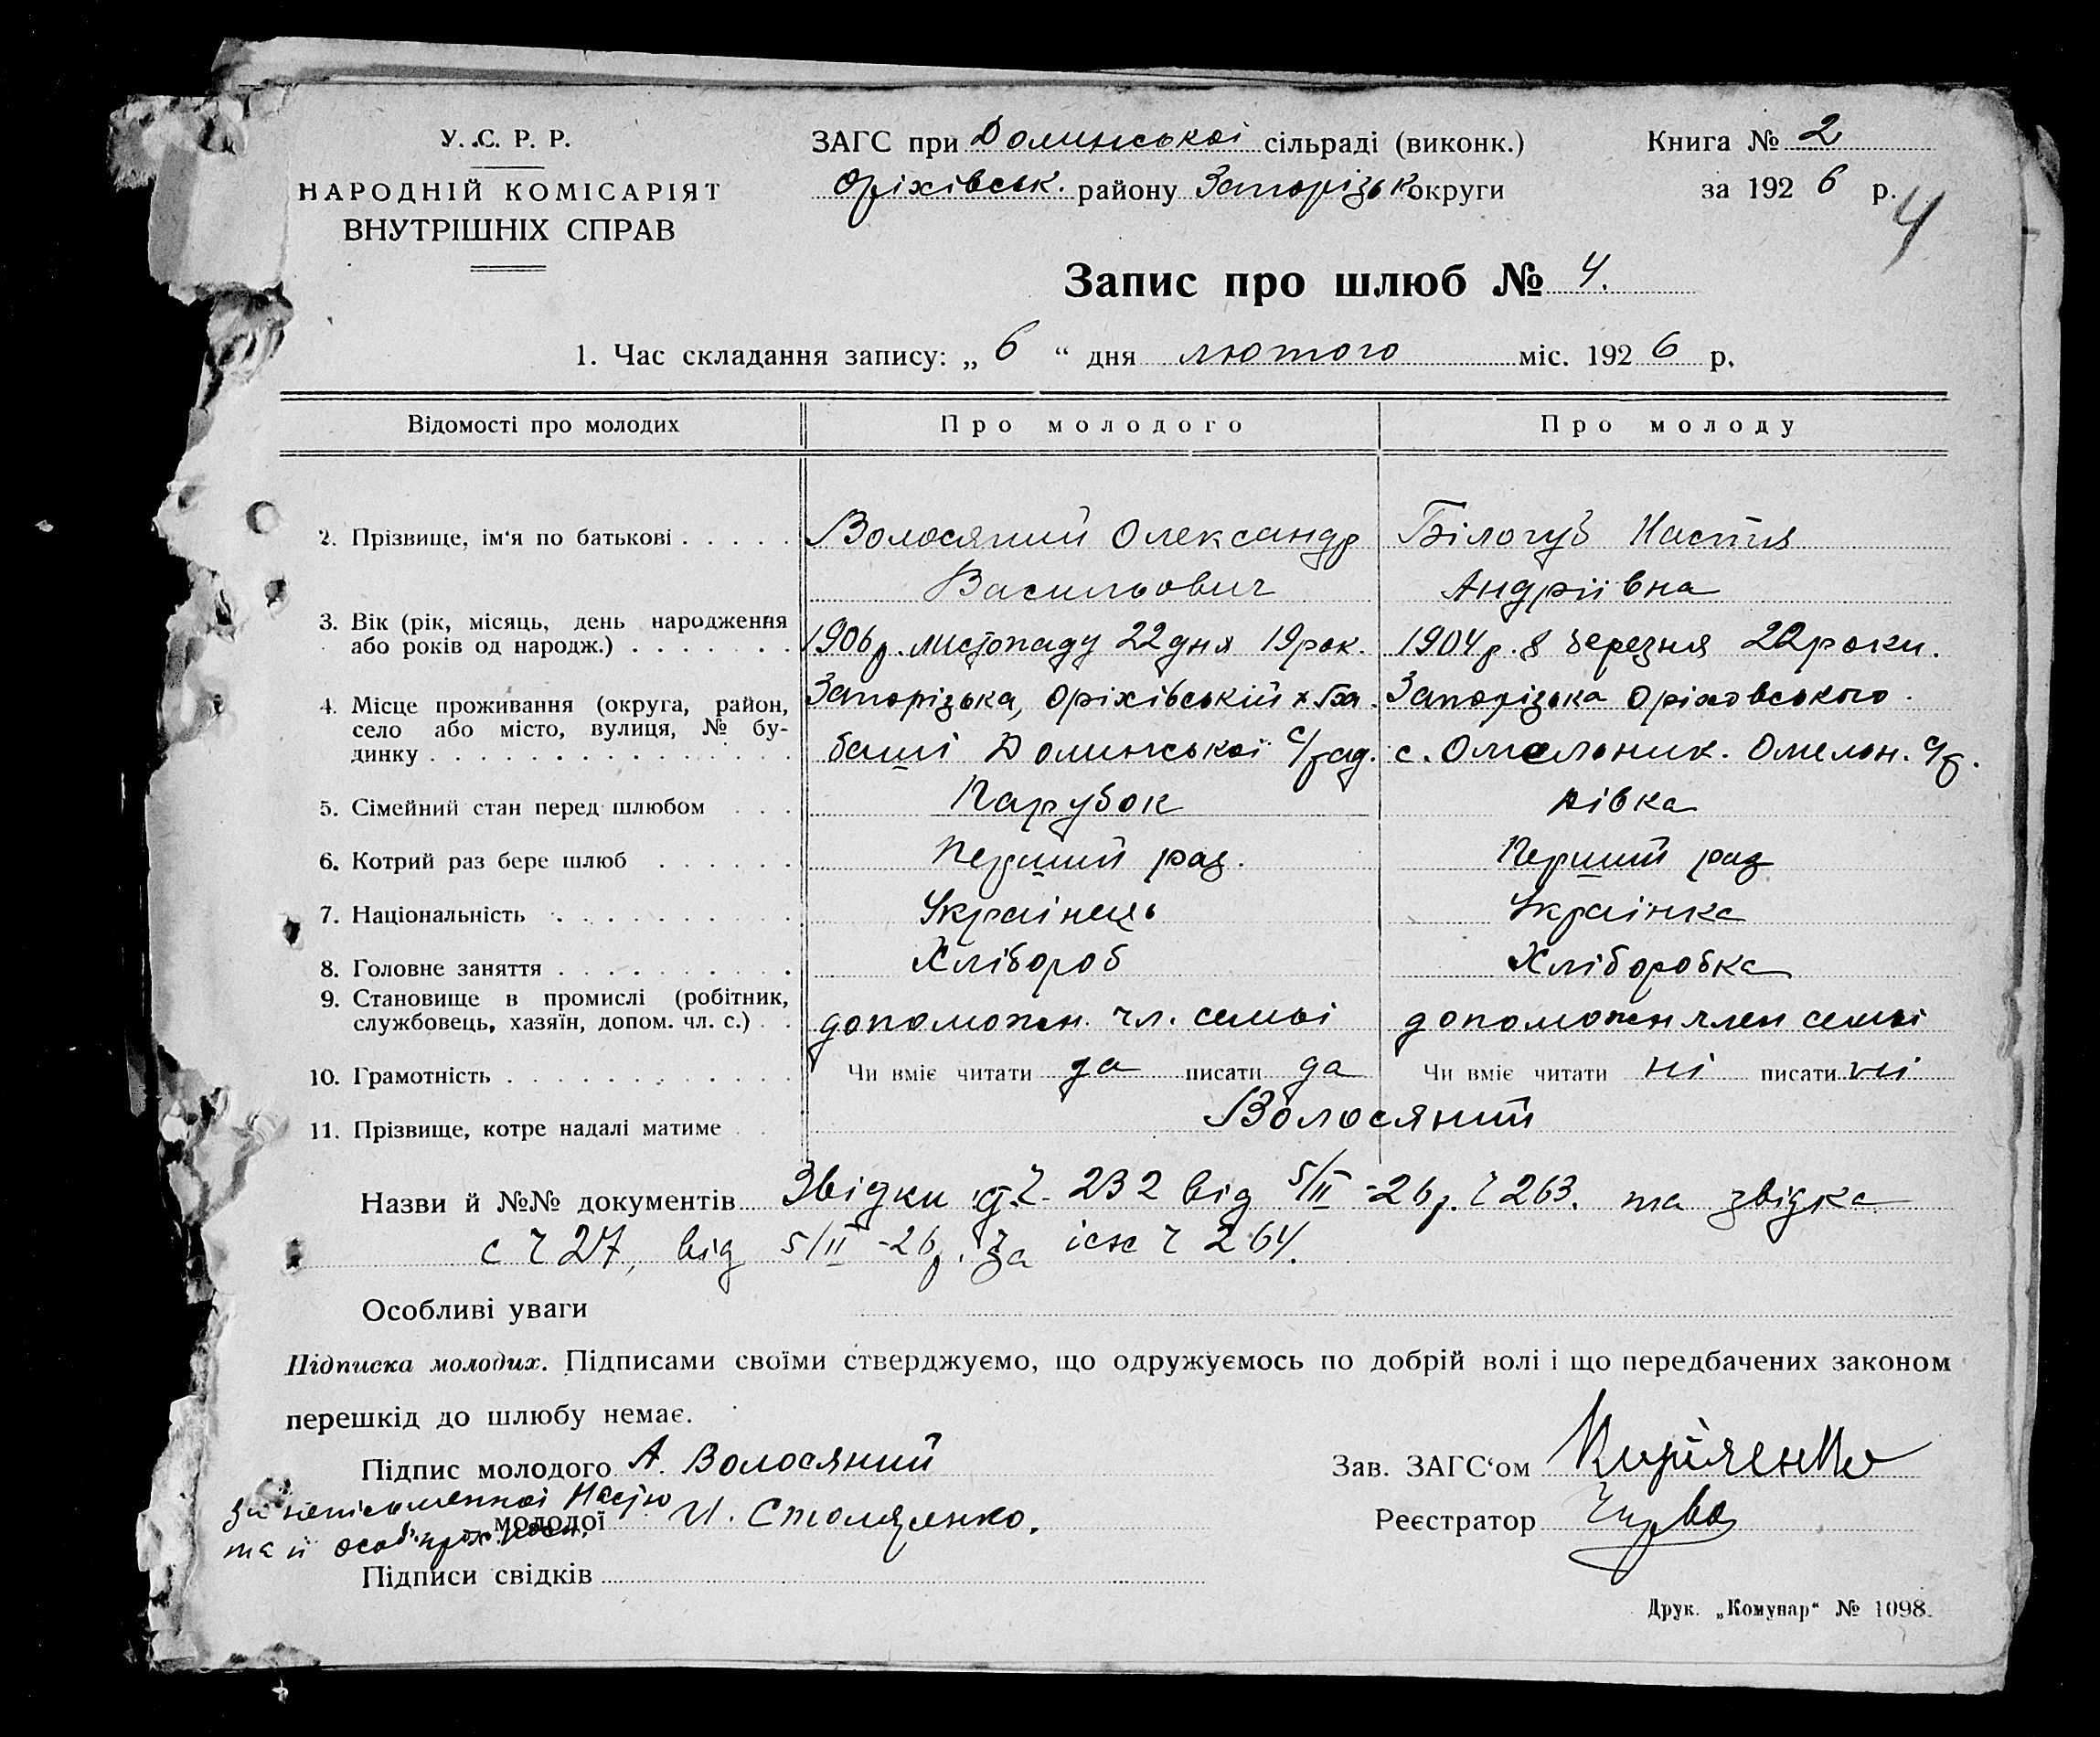 У. С. Р. Р.
НАРОДНІЙ КОМІСАРІЯТ
ВНУТРІШНІХ СПРАВ
ЗАГС при Долинськоі сільраді (виконк.)
Оріхівськ. району Запорізьк округи
Книга № 2
за 192 6 р.
4
Запис про шлюб № 4.
1. Час складання запису: „ 6 “ дня лютого міс. 192 6 р.
Відомості про молодих Про молодого Про молоду
2. Прізвище, ім‘я по батькові Волосяний Олександр Білогуб Настя
Васильович Андріівна
3. Вік (рік, місяць, день народження
або років од народж.) 1906 р. листопаду 22 дня 19 рок. 1904 р. 8 березня 22 роки.
4. Місце проживання (округа, район, Запорізька, Оріхівській Запорізька Оріховського
село або місто, вулиця, № бу-
динку Долинськоі с/рад. с. Омельник. Омельн. с/р.
5. Сімейний стан перед шлюбом Парубок дівка
6. Котрий раз бере шлюб Перший раз. Перший раз
7. Національність Украінець Украінка
8. Головне заняття Хлібороб Хліборобка
9. Становище в промислі (робітник,
службовець, хазяїн, допом. чл. с.) допоможн. чл. семьі допоможн член семьі
10. Грамотність Чи вміє читати да писати да Чи вміє читати ні писати ні
11. Прізвище, котре надалі матиме Волосяний
Назви й №№ документів Звідки 232 від 5/II -26 р. ч 263. та звідка
с ч 27, від 5/II -26 р. за ісх ч 264.
Особливі уваги
Підписка молодих. Підписами своїми стверджуємо, що одружуємось по добрій волі і що передбачених законом
перешкід до шлюбу немає.
Підпис молодого А. Волосяний
За неписьменноі Настю
молодої И. Столяренко.
та іі особ.
Підписи свідків
Зав. ЗАГС‘ом Кириченко
Реєстратор
Друк. „Комунар“ № 1098.